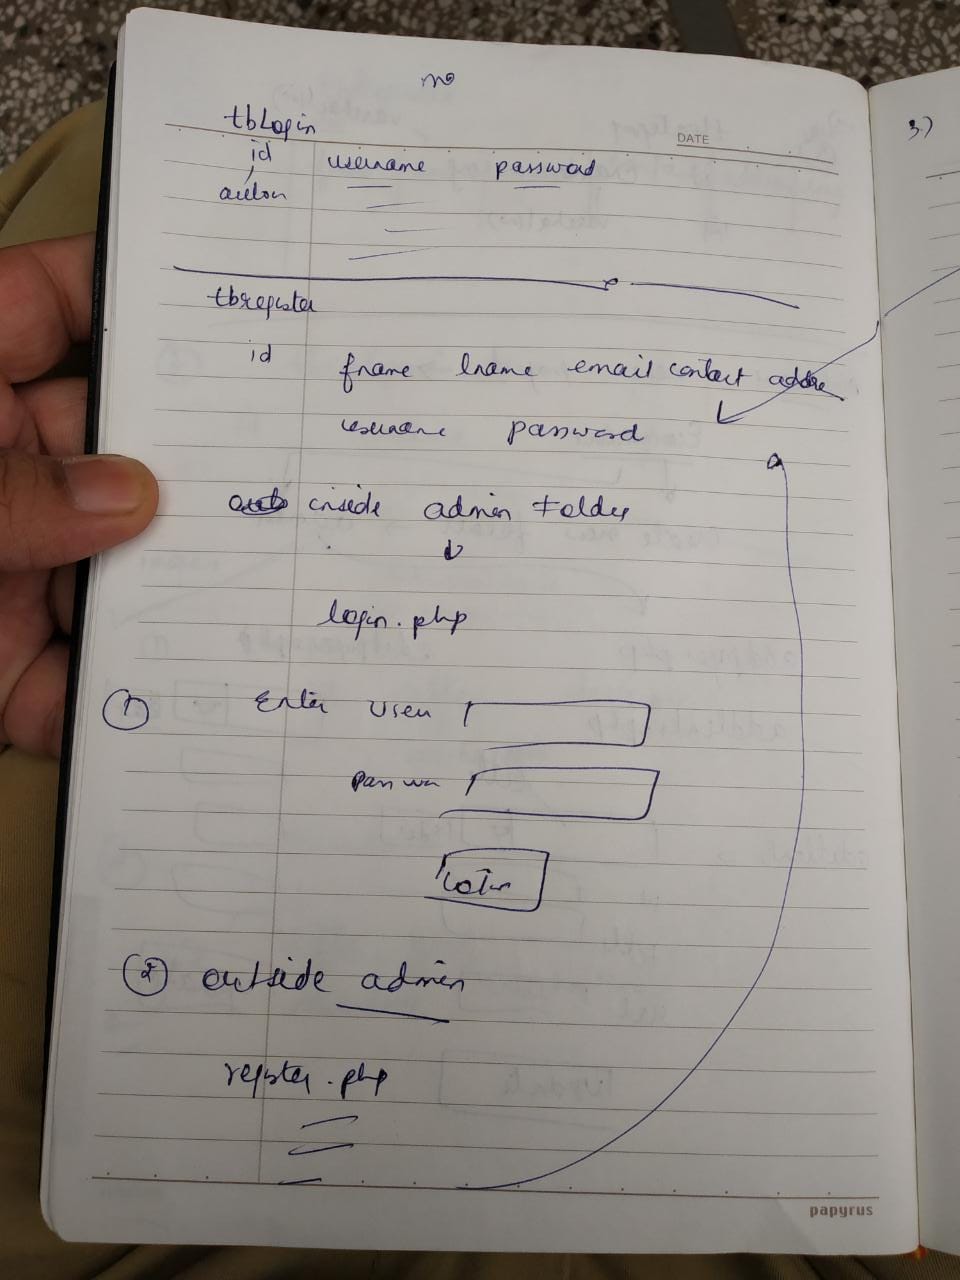 tbLogin
DATE
id username password
tbregister
id
fname lname email contact addre
username password
inside admin Folder
login.php
1 Enter User
Passwor
Login
2 outside admin
register.php
papyrus
3.)